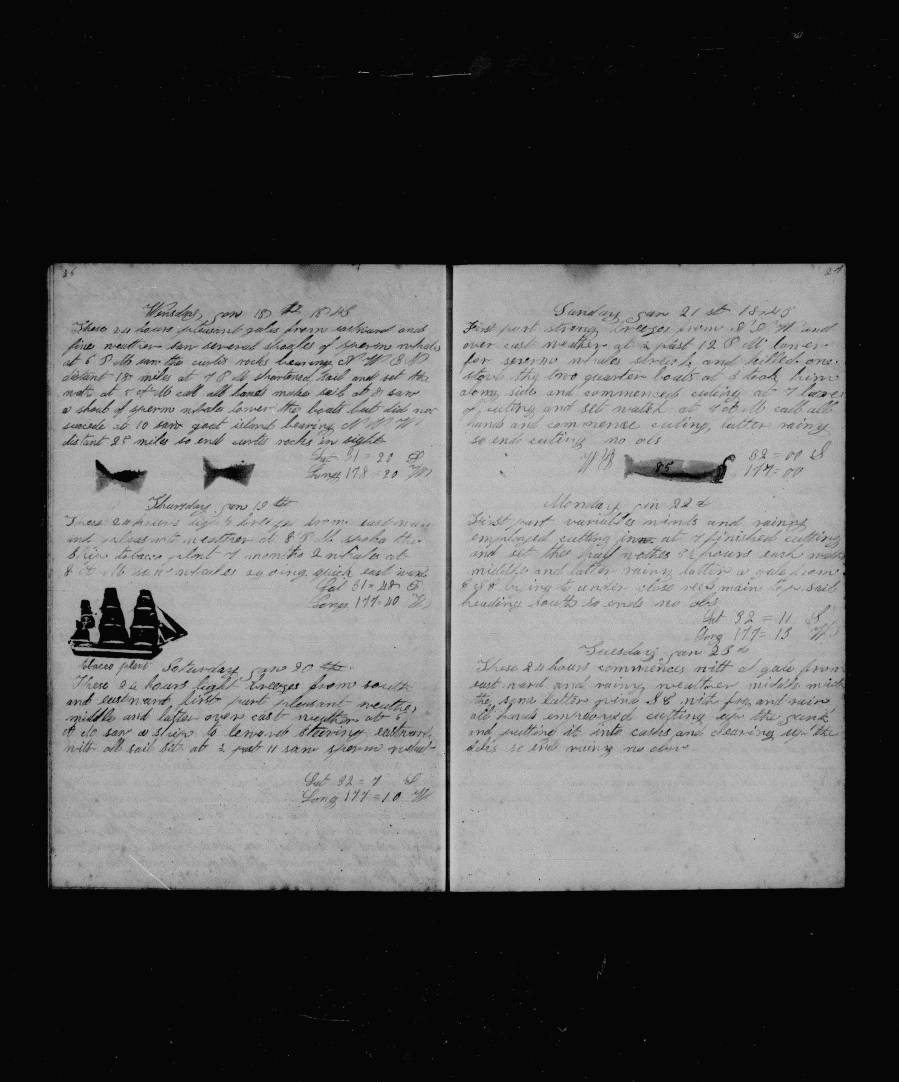 26
Wensday jan 18 th 1845
These 24 hours pleasant gales from eastward and
fine weather saw several shoales of sperm whales
at 6 P M saw the curtis rocks bearing N W B N
distant 18 miles at 7 P M shortened sail and set the
watch at 5 A M call all hands make sail at 8 saw
a shoal of sperm whales lower the boats but did not
succede at 10 saw goat island bearing N N W
distant 25 miles so end curtis rocks in sight
Lat 31 = 20 S
Long 178 = 20 W
Thursday jan 19 th
These 24 hours light breezes from eastward
and pleasant weather at 8 P M spoke the
Ship tobaco plant 7 months 2 whales at
8 A M saw whales a going quick east ward
Lat 31 = 48 S
Longe 177 = 40 W
tobacco plant Saturday jan 20 th
These 24 hours light breezes from south
and eastward first part pleasant weather
middle and latter over cast weather at 6
A M saw a ship to leward steering eastward
with all sail set at ½ past 11 saw sperm whales
Lat 32 = 7 S
Long 177 = 10 W
27
Sunday jan 21 st 1845
First part strong breezes from S S W and
over cast weather at ½ past 12 P M lower
for sperm whales struck and killed one
stove the two quarter boats at 3 took him
along side and commenced cuting at 7 leaves
of cuting and set watch at 4 A M call all
hands and commence cuting, latter rainy
so ends cuting no obs
W B 85 32 = 00 S
177 = 00
Monday jan 22 d
First part variables winds and rainy
employed cutting in at 7 finished cutting
and set the watches 3½ hours each
middle and latter rainy latter a gale from
lying to under close reef main top sail
heading south so ends no obs
Lat 32 = 11 S
Long 177 = 13 W
Tuesday jan 23 d
These 24 hours commences with a gale from
eastward and rainy weather middle much
the same latter with fog and rain
all hands employed cutting up the junk
and putting it into casks and clearing up the
decks so end rainy no obs